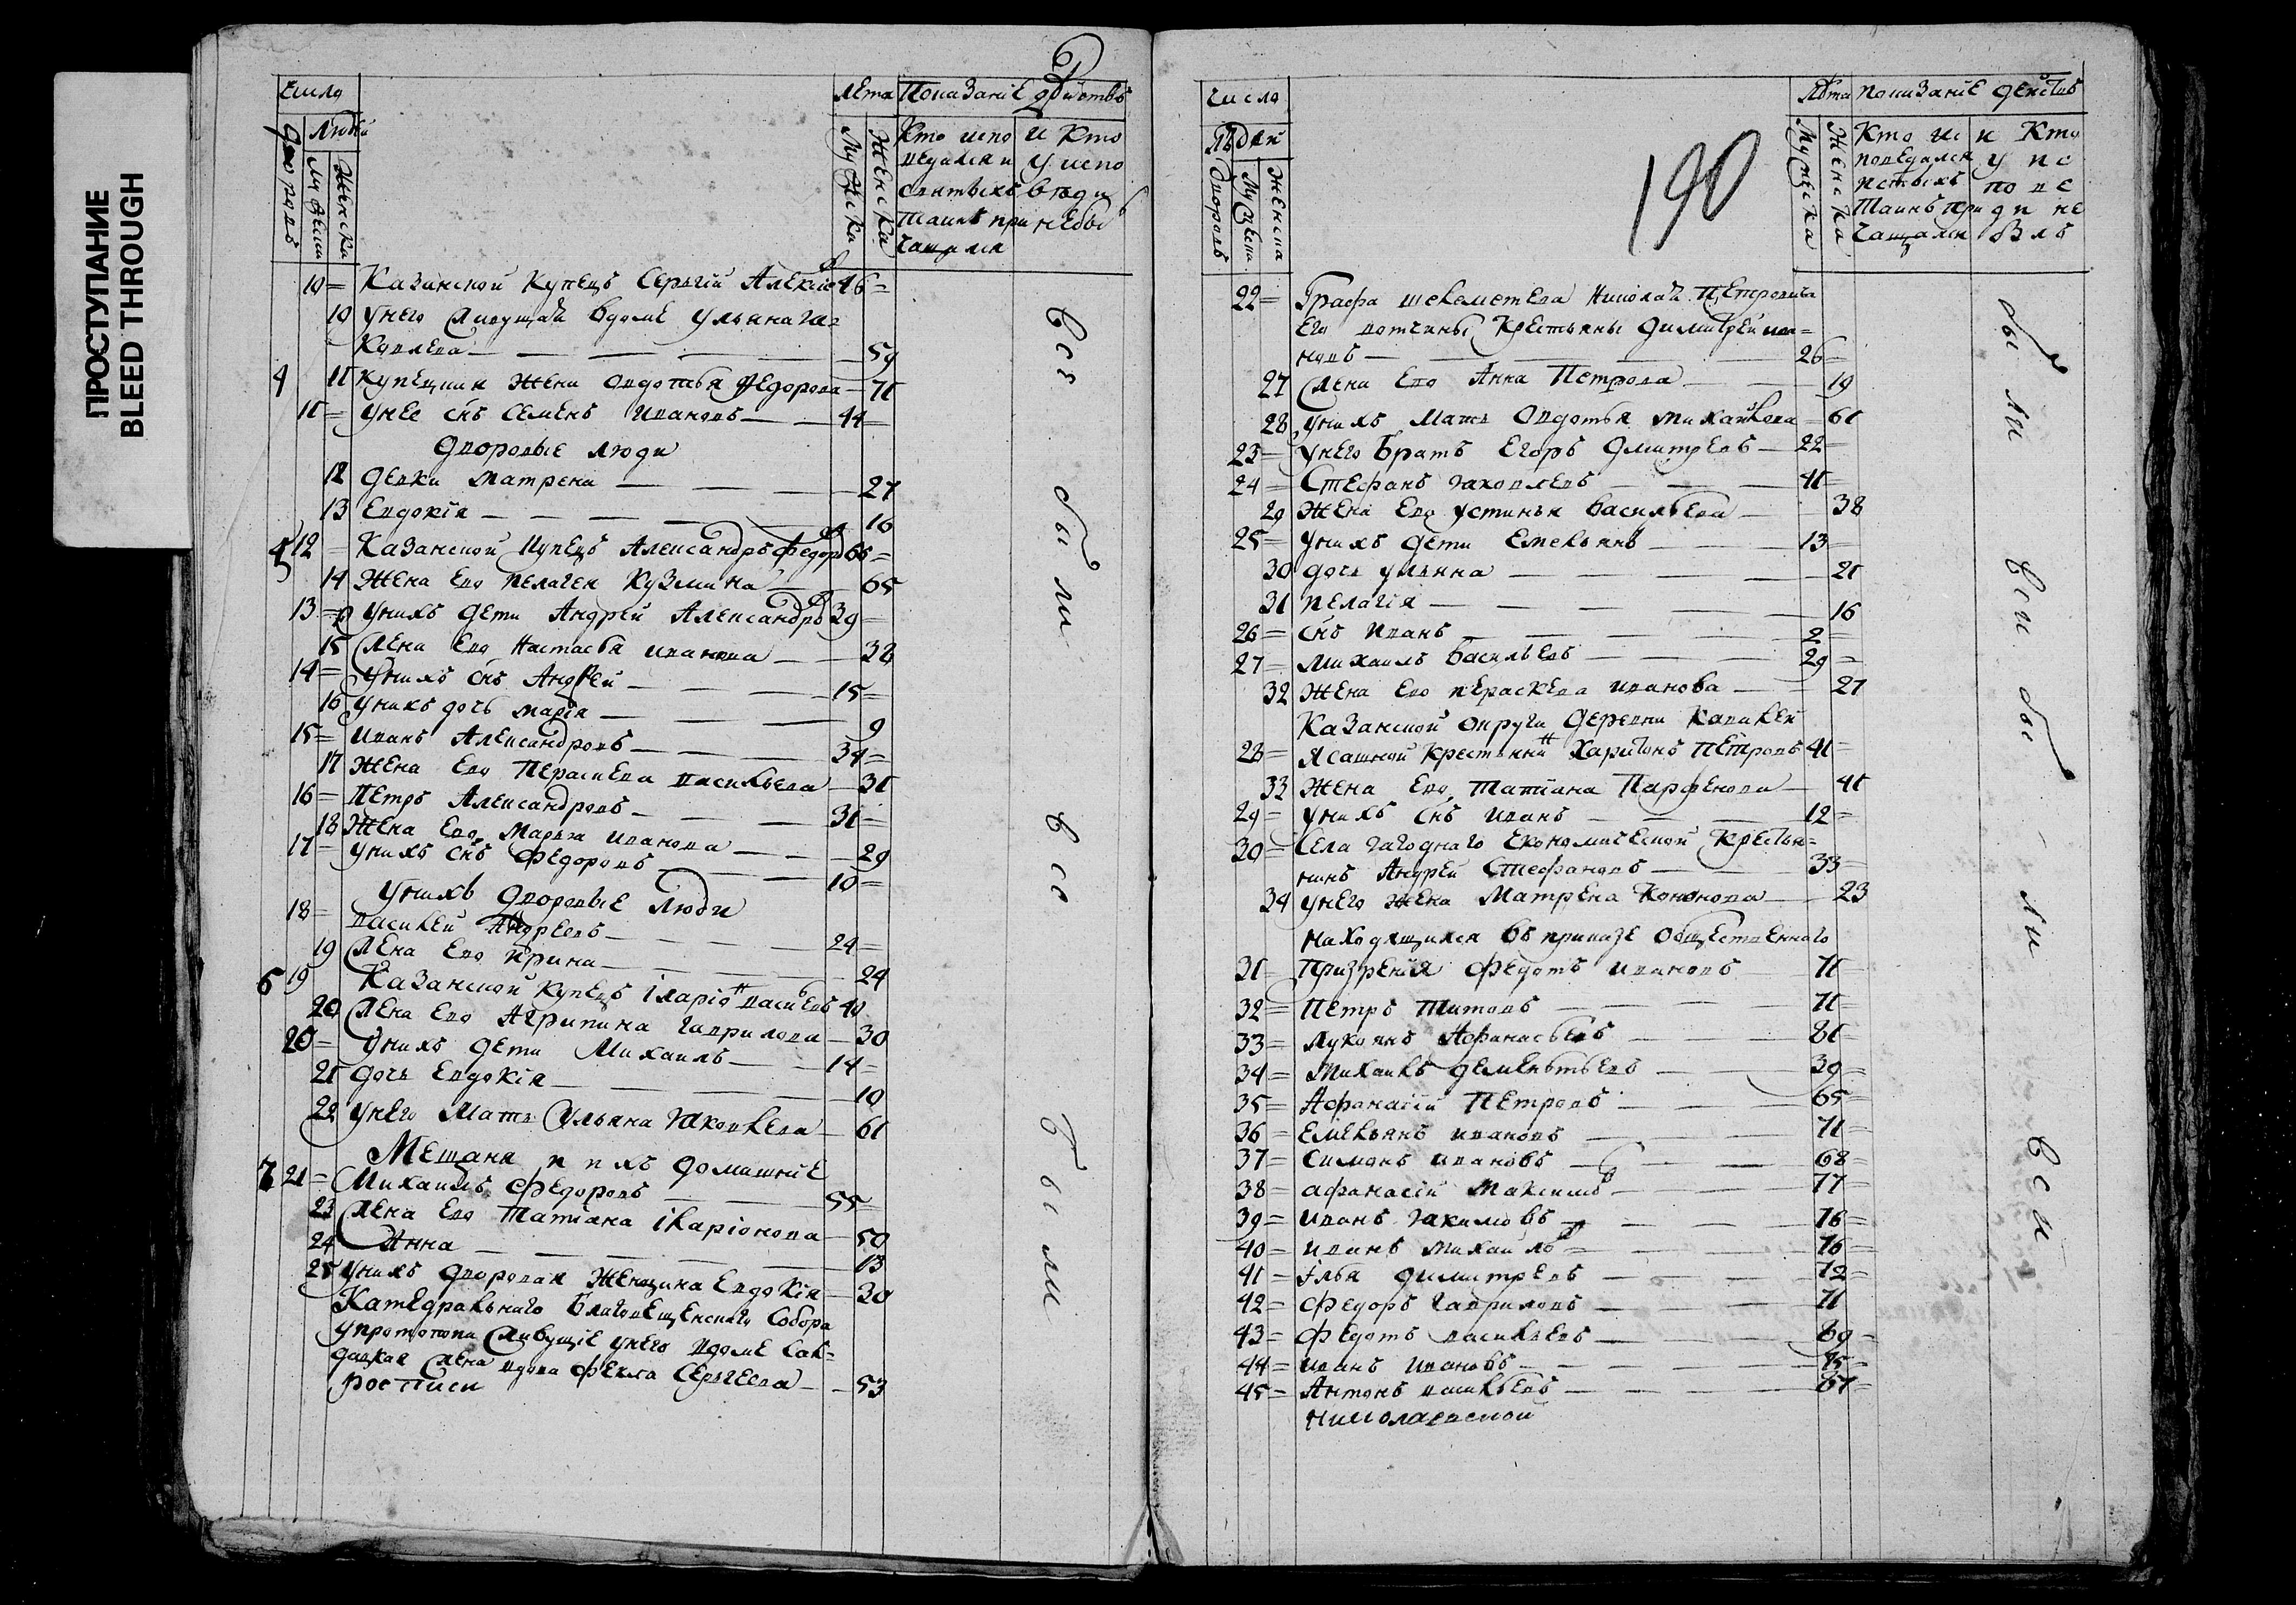 ПРОСТУПАНИЕ
BLEED THROUGH
Число
Людей
дворовъ
Мужеска
Женска
Лета
Мужеска
Женска
Показание действъ
Кто испо и кто
ведался и у испо
святыхъ веди
таинъ при не бы
чащался
10 = Казанской Купецъ Сергiй Алексее 46 =
10 У него живущай в доме Ульяна Га=
59
4 11 Купецкая жена Овдотья Федорова — 71
11 = У нее снъ Семенъ Ивановъ — 44 =
Дворовые люди
12 Девки Матрена — 27
13 Евдокiя — 16
5 12 = Казанской Купецъ Александръ Федор 66 =
14 Жена ево Пелагея Кузмина — 65
13 = У нихъ дети Андрей Александро 39 =
15 Жена ево Настасья Иванова — 38
14 = У нихъ снъ Андрей — 15 =
16 У нихъ дочь Марiя — 9
15 = Иванъ Александровъ — 34 =
17 Жена ево Параскева Васильева — 31
16 = Петръ Александровъ — 31 =
18 Жена ево Марья Иванова — 29
17 = У нихъ снъ Федоровъ — 10 =
У нихъ дворовые люди
18 = Василей Андреевъ — 24 =
19 Жена ево Ирина — 24
6 19 Казанской Купецъ Iларiонъ Васиевъ 40
20 Жена ево Агрипина Гаврилова — 30
20 = У нихъ дети Михаилъ — 14 =
21 Дочь Евдокiя — 10
22 У него мать Ульяна Яковлева — 61
Мещаня и ихъ домашнiе
7 21 = Михаилъ Федоровъ — 55 =
23 Жена ево Татiана Iларiонова — 50
24 Анна — 13
25 У нихъ дворовая женщина Евдокiя — 30
Катедральнаго Благовещенскаго Собора
у протопопа живущiе у него в доме сол=
датская жена вдова Фекла Сергеева — 53
росписи
все были все были
Число
Людей
дворовъ
Мужеска
Женска
190
Лета
Мужеска
Женска
Показанiе действъ
Кто ис и кто
22 = Графа Шереметева Николай Петровича
Его вотчины Крестьяны Димитрей Ива=
новъ — 26 =
27 Жена ево Анна Петрова — 19
28 У нихъ мать Овдотья Михайлова = 61
23 = У него братъ Егоръ Дмитревъ — 22 =
24 = Стефанъ Яковлевъ — 41 =
29 Жена ево Устинья Васильева — 38
25 = У нихъ дети Емельянъ — 13 =
30 Дочь Ульяна — 21
31 Пелагiя — 16
26 = Снъ Иванъ — 2 =
27 = Михаилъ Васильевъ — 29 =
32 Жена ево Пераскева Иванова — 27
Казанской округи Деревни Кавалей
28 = Ясашной Крестьянинъ Харитонъ Петровъ 41 =
33 Жена ево Татiана Парфенова — 41
29 = У нихъ снъ Иванъ — 12 =
30 = Села Ягоднаго Економической Крестья=
нинъ Андрей Стефановъ — 33 =
34 У него жена Матрена Кононова — 23
Находящихся въ приказе общественнаго
31 = Призренiя Федотъ Ивановъ — 71 =
32 = Петръ Титовъ — 71 =
33 = Лукоянъ Афанасьевъ — 81 =
34 = Михаилъ Дементьевъ — 39 =
35 = Афанасiй Петровъ — 65 =
36 = Емельянъ Ивановъ — 71 =
37 = Симонъ Ивановъ — 68 =
38 = Афанасiй Максимовъ — 77 =
39 = Иванъ Якимовъ — 76 =
40 = Иванъ Михайловъ — 76 =
41 = Iлья Димитревъ — 72 =
42 = Федоръ Гавриловъ — 71 =
43 = Федотъ Васильевъ — 69 =
44 = Иванъ Ивановъ — 75 =
45 = Антонъ Васильевъ — 67 =
Николаевской
были вси были вси